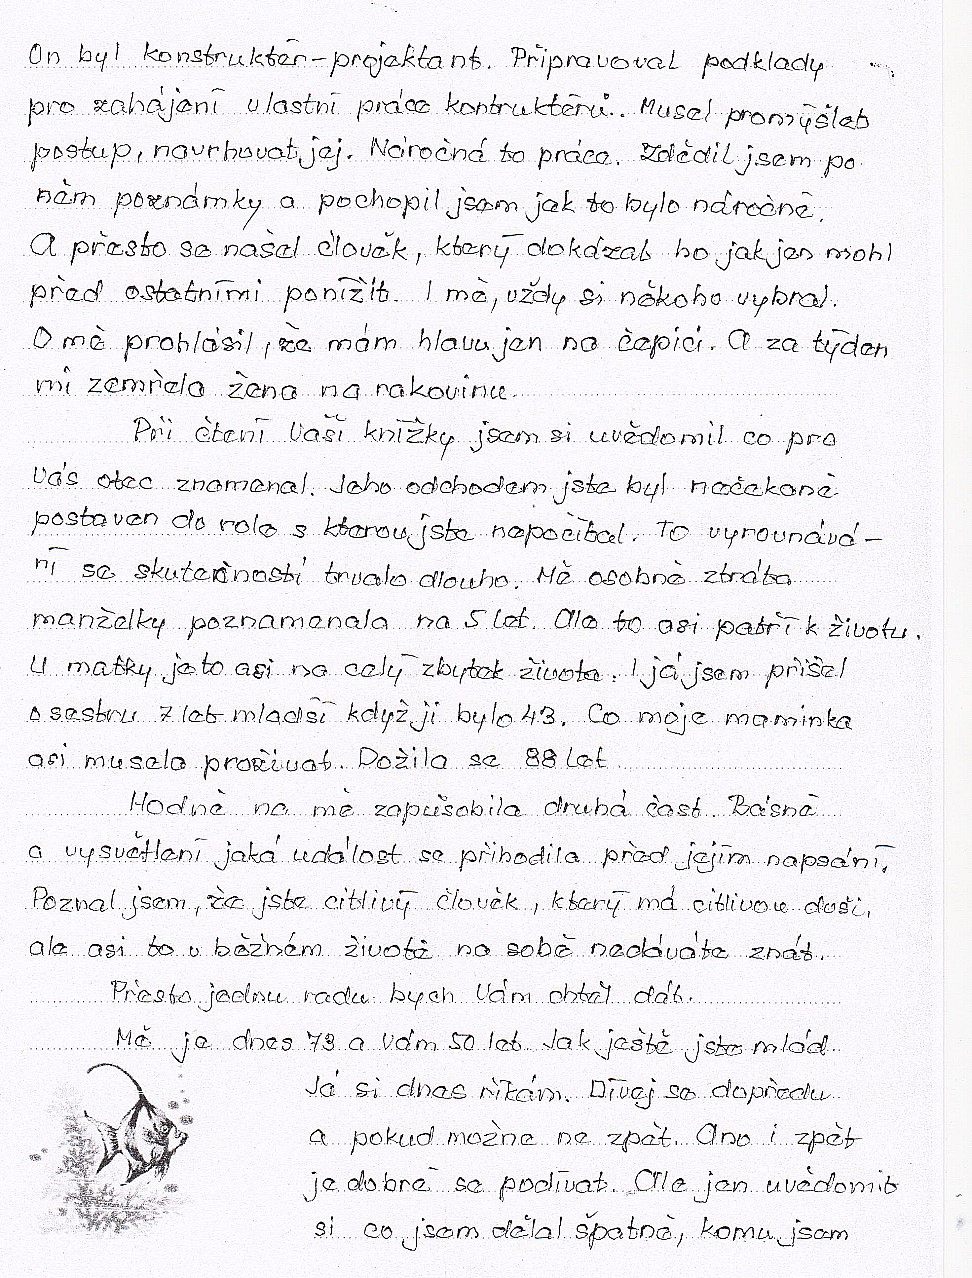 On byl konstruktér-projektant. Připravoval podklady
pro zahájení vlastní práce kontruktérů. Musel promýšlet
postup, navrhovat jej. Náročná to práce. Zdědil jsem po
něm poznámky a pochopil jsem jak to bylo náročné.
A přesto se našel člověk, který dokázal ho jak jen mohl
před ostatními ponížit. I mě, vždy si někoho vybral.
O mě prohlásil, že mám hlavu jen na čepici. A za týden
mi zemřela žena na rakovinu.
Při čtení Vaší knížky jsem si uvědomil co pro
Vás otec znamenal. Jeho odchodem jste byl nečekaně
postaven do role s kterou jste nepočítal. To vyrovnává-
ní se skutečností trvalo dlouho. Mě osobně ztráta
manželky poznamenala na 5 let. Ale to asi patří k životu.
U matky je to asi na celý zbytek života. I já jsem přišel
o sestru 7 let mladší když jí bylo 43. Co moje maminka
asi musela prožívat. Dožila se 88 let
Hodně na mě zapůsobila druhá část. Básně
a vysvětlení jaká událost se přihodila před jejím napsání.
Poznal jsem, že jste citlivý člověk, který má citlivou duši,
ale asi to v běžném životě na sobě nedáváte znát.
Přesto jednu radu bych Vám chtěl dát.
Mě je dnes 73 a Vám 50 let. Jak ještě jste mlád.
Já si dnes říkám. Dívej se dopředu
a pokud možno ne zpět. Ano i zpět
je dobré se podívat. Ale jen uvědomit
si co jsem dělal špatně, komu jsem